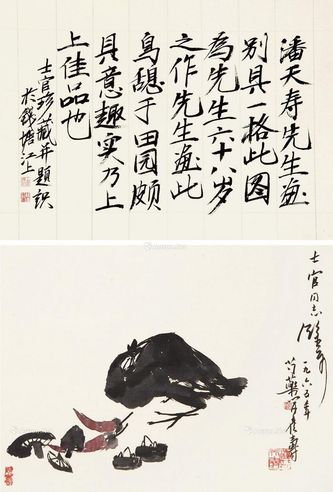 潘天寿先生画
别具一格此图
为先生六十八岁
之作先生画此
鸟憩于田园颇
具意趣实乃上
上佳品也
士官珍藏并题识
于钱塘江上
士官同志
一九六五年
寿